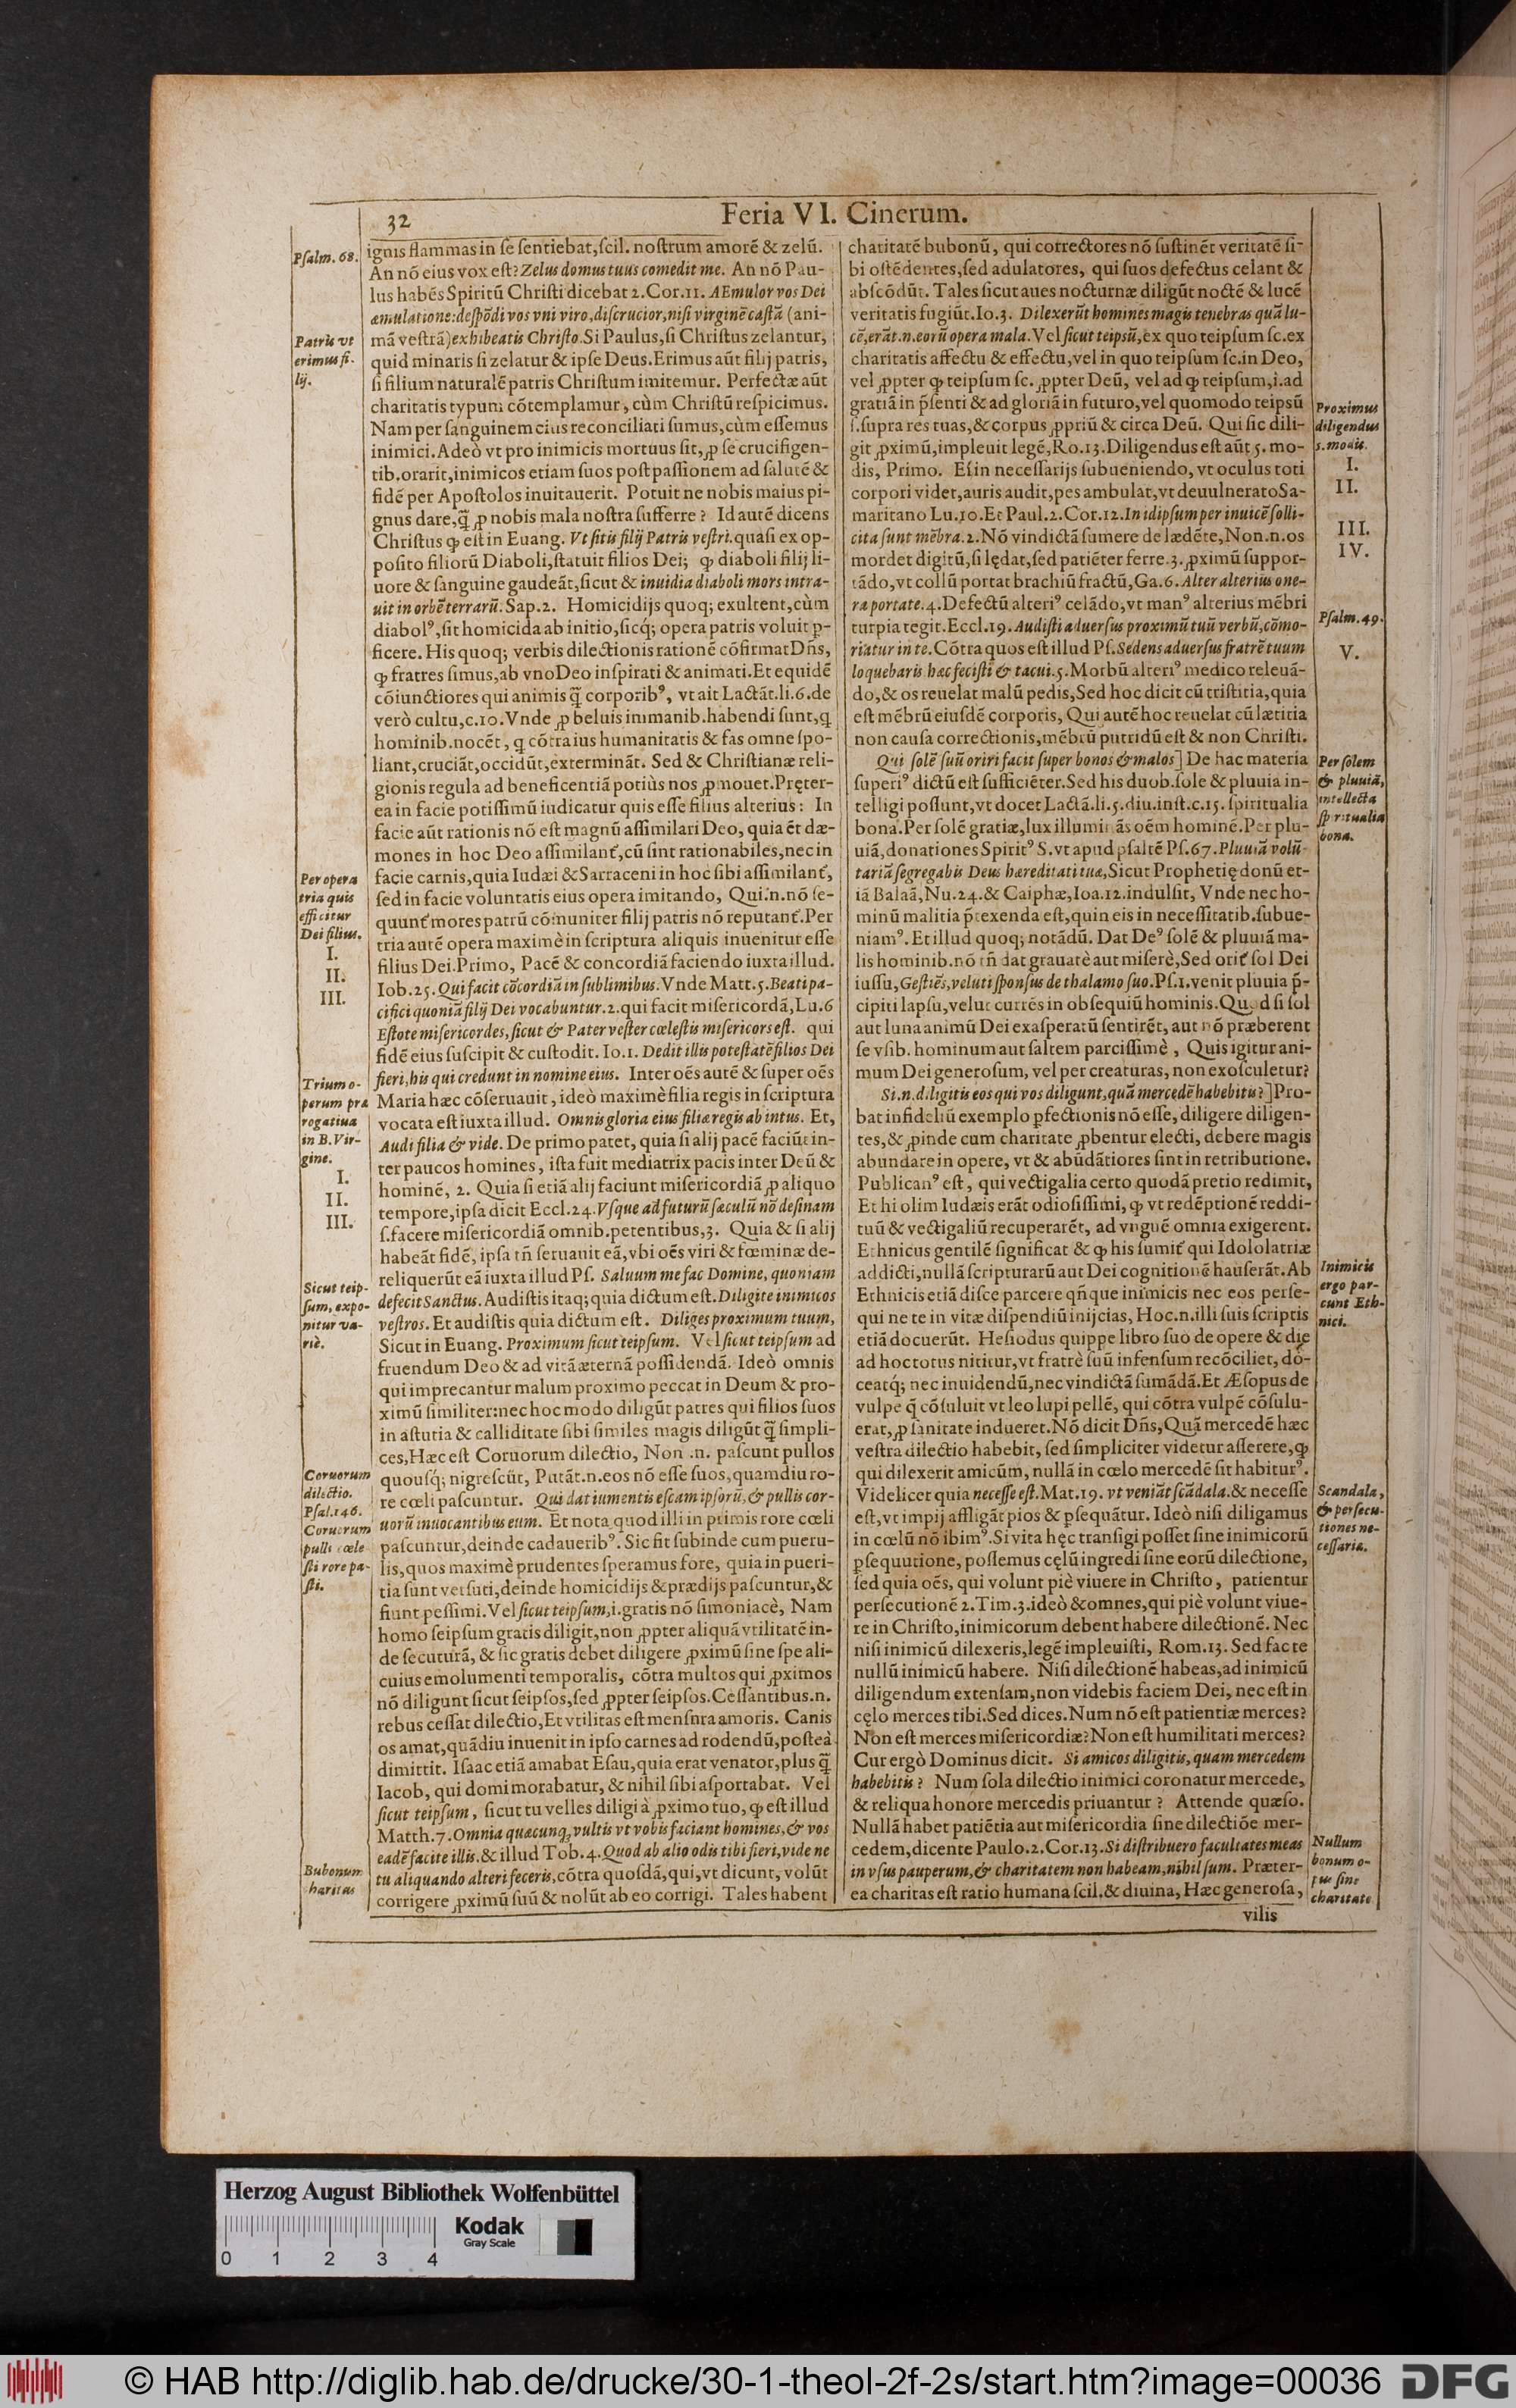 32
Feria VI. Cinerum.
Pſalm. 68.
Patris vt
erimus fi-
lij.
Per opera
tria quis
efficitur
Dei filius.
I.
II.
III.
Trium o-
perum præ
rogatiua
in B. Vir-
gine.
I.
II.
III.
Sicut teip-
ſum, expo-
nitur va-
riè.
Coruorum
dilectio.
Pſal. 146.
Coruorum
pulli cœle
ſti rore pa-
ſti.
Bubonum
haritas
ignis flammas in ſe ſentiebat, ſcil. noſtrum amorē & zelū.
An nō eius vox eſt? Zelus domus tuus comedit me. An nō Pau-
lus habēs Spiritū Chriſti dicebat 2. Cor. 11. AEmulor vos Dei
æmulatione: deſpōdi vos vni viro, diſcrucior, niſi virginē caſtā (ani-
mā veſtrā) exhibeatis Chriſto. Si Paulus, ſi Chriſtus zelantur,
quid minaris ſi zelatur & ipſe Deus. Erimus aūt filij patris,
ſi filium naturalē patris Chriſtum imitemur. Perfectæ aūt
charitatis typum cōtemplamur, cùm Chriſtū reſpicimus.
Nam per ſanguinem eius reconciliati ſumus, cùm eſſemus
inimici. Adeò vt pro inimicis mortuus ſit, ꝓ ſe crucifigen-
tib. orarit, inimicos etiam ſuos poſt paſſionem ad ſalutē &
fidē per Apoſtolos inuitauerit. Potuit ne nobis maius pi-
gnus dare, q̃ ꝓ nobis mala noſtra ſufferre? Id autē dicens
Chriſtus ꝙ eſt in Euang. Vt ſitis filij Patris veſtri. quaſi ex op-
poſito filiorū Diaboli, ſtatuit filios Dei; ꝙ diaboli filij li-
uore & ſanguine gaudeāt, ſicut & inuidia diaboli mors intra-
uit in orbē terrarū. Sap. 2. Homicidijs quoq; exultent, cùm
diabolꝰ, ſit homicida ab initio, ſicq́; opera patris voluit ꝑ-
ficere. His quoq; verbis dilectionis rationē cōfirmat Dn̄s,
ꝙ fratres ſimus, ab vno Deo inſpirati & animati. Et equidē
cōiunctiores qui animis q̃ corporibꝰ, vt ait Lactāt. li. 6. de
verò cultu, c. 10. Vnde ꝓ beluis immanib. habendi ſunt, q
hominib. nocēt, q cōtra ius humanitatis & fas omne ſpo-
liant, cruciāt, occidūt, extermināt. Sed & Chriſtianæ reli-
gionis regula ad beneficentiā potiùs nos ꝓmouet. Pręter-
ea in facie potiſſimū iudicatur quis eſſe filius alterius: In
facie aūt rationis nō eſt magnū aſſimilari Deo, quia ēt dæ-
mones in hoc Deo aſſimilant᷑, cū ſint rationabiles, nec in
facie carnis, quia Iudæi & Sarraceni in hoc ſibi aſſimilant᷑,
ſed in facie voluntatis eius opera imitando, Qui. n. nō ſe-
quunt᷑ mores patrū cōmuniter filij patris nō reputant᷑. Per
tria autē opera maximè in ſcriptura aliquis inuenitur eſſe
filius Dei. Primo, Pacē & concordiā faciendo iuxta illud.
Iob. 25. Qui facit cōcordiā in ſublimibus. Vnde Matt. 5. Beati pa-
cifici quoniā filij Dei vocabuntur. 2. qui facit miſericordā, Lu. 6
Eſtote miſericordes, ſicut & Pater veſter cœleſtis miſericors eſt. qui
fidē eius ſuſcipit & cuſtodit. Io. 1. Dedit illis poteſtatē filios Dei
fieri, his qui credunt in nomine eius. Inter oēs autē & ſuper oēs
Maria hæc cōſeruauit, ideò maximè filia regis in ſcriptura
vocata eſt iuxta illud. Omnis gloria eius filiæ regis ab intus. Et,
Audi filia & vide. De primo patet, quia ſi alij pacē faciūt in-
ter paucos homines, iſta fuit mediatrix pacis inter Deū &
hominē, 2. Quia ſi etiā alij faciunt miſericordiā ꝓ aliquo
tempore, ipſa dicit Eccl. 24. Vſque ad futurū ſæculū nō deſinam
ſ. facere miſericordiā omnib. petentibus, 3. Quia & ſi alij
habeāt fidē, ipſa tn̄ ſeruauit eā, vbi oēs viri & fœminæ de-
reliquerūt eā iuxta illud Pſ. Saluum me fac Domine, quoniam
defecit Sanctus. Audiſtis itaq; quia dictum eſt. Diligite inimicos
veſtros. Et audiſtis quia dictum eſt. Diliges proximum tuum,
Sicut in Euang. Proximum ſicut teipſum. Vel ſicut teipſum ad
fruendum Deo & ad vitā æternā poſſidendā. Ideò omnis
qui imprecantur malum proximo peccat in Deum & pro-
ximū ſimiliter: nec hoc modo diligūt patres qui filios ſuos
in aſtutia & calliditate ſibi ſimiles magis diligūt q̃ ſimpli-
ces, Hæc eſt Coruorum dilectio, Non .n. paſcunt pullos
quouſq́; nigreſcūt, Putāt. n. eos nō eſſe ſuos, quamdiu ro-
re cœli paſcuntur. Qui dat iumentis eſcam ipſorū, & pullis cor-
uorū inuocantibus eum. Et nota quod illi in primis rore cœli
paſcuntur, deinde cadaueribꝰ. Sic fit ſubinde cum pueru-
lis, quos maximè prudentes ſperamus fore, quia in pueri-
tia ſunt verſuti, deinde homicidijs & prædijs paſcuntur, &
fiunt peſſimi. Vel ſicut teipſum, i. gratis nō ſimoniacè, Nam
homo ſeipſum gratis diligit, non ꝓpter aliquā vtilitatē in-
de ſecuturā, & ſic gratis debet diligere ꝓximū ſine ſpe ali-
cuius emolumenti temporalis, cōtra multos qui ꝓximos
nō diligunt ſicut ſeipſos, ſed ꝓpter ſeipſos. Ceſſantibus. n.
rebus ceſſat dilectio, Et vtilitas eſt menſura amoris. Canis
os amat, quādiu inuenit in ipſo carnes ad rodendū, poſteà
dimittit. Iſaac etiā amabat Eſau, quia erat venator, plus q̃
Iacob, qui domi morabatur, & nihil ſibi aſportabat. Vel
ſicut teipſum, ſicut tu velles diligi à ꝓximo tuo, ꝙ eſt illud
Matth. 7. Omnia quæcunq; vultis vt vobis faciant homines, & vos
eadē facite illis. & illud Tob. 4. Quod ab alio odis tibi fieri, vide ne
tu aliquando alteri feceris, cōtra quoſdā, qui, vt dicunt, volūt
corrigere ꝓximū ſuū & nolūt ab eo corrigi. Tales habent
charitatē bubonū, qui correctores nō ſuſtinēt veritatē ſi-
bi oſtēdentes, ſed adulatores, qui ſuos defectus celant &
abſcōdūt. Tales ſicut aues nocturnæ diligūt noctē & lucē
veritatis fugiūt. Io. 3. Dilexerūt homines magis tenebras quā lu-
cē, erāt. n. eorū opera mala. Vel ſicut teipsū, ex quo teipſum ſc. ex
charitatis affectu & effectu, vel in quo teipſum ſc. in Deo,
vel ꝓpter ꝙ teipſum ſc. ꝓpter Deū, vel ad ꝙ teipſum, i. ad
gratiā in p̄ſenti & ad gloriā in futuro, vel quomodo teipsū
ſ. ſupra res tuas, & corpus ꝓpriū & circa Deū. Qui ſic dili-
git ꝓximū, impleuit legē, Ro. 13. Diligendus eſt aūt 5. mo-
dis, Primo. Ei in neceſſarijs ſubueniendo, vt oculus toti
corpori videt, auris audit, pes ambulat, vt de vulnerato Sa-
maritano Lu. 10. Et Paul. 2. Cor. 12. In idipſum per inuicē ſolli-
cita ſunt mēbra. 2. Nō vindictā ſumere de lædēte, Non. n. os
mordet digitū, ſi lędat, ſed patiēter ferre. 3. ꝓximū ſuppor-
tādo, vt collū portat brachiū fractū, Ga. 6. Alter alterius one-
ra portate. 4. Defectū alteriꝰ celādo, vt manꝰ alterius mēbri
turpia tegit. Eccl. 19. Audiſti aduerſus proximū tuū verbū, cōmo-
riatur in te. Cōtra quos eſt illud Pſ. Sedens aduerſus fratrē tuum
loquebaris hæc feciſti & tacui. 5. Morbū alteriꝰ medico releuā-
do, & os reuelat malū pedis, Sed hoc dicit cū triſtitia, quia
eſt mēbrū eiuſdē corporis, Qui autē hoc reuelat cū lætitia
non cauſa correctionis, mēbrū putridū eſt & non Chriſti.
Qui ſolē ſuū oriri facit ſuper bonos & malos] De hac materia
ſuperiꝰ dictū eſt ſufficiēter. Sed his duob. ſole & pluuia in-
telligi poſſunt, vt docet Lactā. li. 5. diu. inſt. c. 15. ſpiritualia
bona. Per ſolē gratiæ, lux illuminās oēm hominē. Per plu-
uiā, donationes Spiritꝰ S. vt apud pſaltē Pſ. 67. Pluuiā volū-
tariā ſegregabis Deus hæreditati tuæ, Sicut Prophetię donū et-
iā Balaā, Nu. 24. & Caiphæ, Ioa. 12. indulſit, Vnde nec ho-
minū malitia p̄texenda eſt, quin eis in neceſſitatib. ſubue-
niamꝰ. Et illud quoq; notādū. Dat Deꝰ ſolē & pluuiā ma-
lis hominib. nō tn̄ dat grauatè aut miſerè, Sed orit᷑ ſol Dei
iuſſu, Geſtiēs, veluti ſponſus de thalamo ſuo. Pſ. 1. venit pluuia p̄-
cipiti lapſu, velut currēs in obſequiū hominis. Quod ſi ſol
aut luna animū Dei exaſperatū ſentirēt, aut nō præberent
ſe vſib. hominum aut ſaltem parciſſimè, Quis igitur ani-
mum Dei generoſum, vel per creaturas, non exoſculetur?
Si. n. diligitis eos qui vos diligunt, quā mercedē habebitis?] Pro-
bat infideliū exemplo ꝑfectionis nō eſſe, diligere diligen-
tes, & ꝓinde cum charitate ꝓbentur electi, debere magis
abundare in opere, vt & abūdātiores ſint in retributione.
Publicanꝰ eſt, qui vectigalia certo quodā pretio redimit,
Et hi olim Iudæis erāt odioſiſſimi, ꝙ vt redēptionē reddi-
tuū & vectigaliū recuperarēt, ad vnguē omnia exigerent.
Ethnicus gentilē ſignificat & ꝙ his ſumit᷑ qui Idololatriæ
addicti, nullā ſcripturarū aut Dei cognitionē hauſerāt. Ab
Ethnicis etiā diſce parcere qn̄que inimicis nec eos perſe-
qui ne te in vitæ diſpendiū inijcias, Hoc. n. illi ſuis ſcriptis
etiā docuerūt. Heſiodus quippe libro ſuo de opere & die
ad hoc totus nititur, vt fratrē ſuū infenſum recōciliet, do-
ceatq́; nec inuidendū, nec vindictā ſumādā. Et Æſopus de
vulpe q̄ cōſuluit vt leo lupi pellē, qui cōtra vulpē cōſulu-
erat, ꝓ ſanitate indueret. Nō dicit Dn̄s, Quā mercedē hæc
veſtra dilectio habebit, ſed ſimpliciter videtur aſſerere, ꝙ
qui dilexerit amicūm, nullā in cœlo mercedē ſit habiturꝰ.
Videlicet quia neceſſe eſt. Mat. 19. vt veniāt ſcādala. & neceſſe
eſt, vt impij affligāt pios & ꝑſequātur. Ideò niſi diligamus
in cœlū nō ibimꝰ. Si vita hęc tranſigi poſſet ſine inimicorū
ꝑſequutione, poſſemus cęlū ingredi ſine eorū dilectione,
ſed quia oēs, qui volunt piè viuere in Chriſto, patientur
perſecutionē 2. Tim. 3. ideò & omnes, qui piè volunt viue-
re in Chriſto, inimicorum debent habere dilectionē. Nec
niſi inimicū dilexeris, legē impleuiſti, Rom. 13. Sed fac te
nullū inimicū habere. Niſi dilectionē habeas, ad inimicū
diligendum extenſam, non videbis faciem Dei, nec eſt in
cęlo merces tibi. Sed dices. Num nō eſt patientiæ merces?
Non eſt merces miſericordiæ? Non eſt humilitati merces?
Cur ergò Dominus dicit. Si amicos diligitis, quam mercedem
habebitis? Num ſola dilectio inimici coronatur mercede,
& reliqua honore mercedis priuantur? Attende quæſo.
Nullā habet patiētia aut miſericordia ſine dilectiōe mer-
cedem, dicente Paulo. 2. Cor. 13. Si diſtribuero facultates meas
in vſus pauperum, & charitatem non habeam, nihil ſum. Præter-
ea charitas eſt ratio humana ſcil. & diuina, Hæc generoſa,
vilis
Proximus
diligendus
5. modis.
I.
II.
III.
IV.
Pſalm. 49.
V.
Per ſolem
& pluuiā,
intellecta
ſpiritualia
bona.
Inimicis
ergo par-
cunt Eth-
nici.
Scandala,
& perſecu-
tiones ne-
ceſſaria.
Nullum
bonum o-
pus ſine
charitate
Herzog August Bibliothek Wolfenbüttel
Kodak
Gray Scale
0 1 2 3 4
© HAB http://diglib.hab.de/drucke/30-1-theol-2f-2s/start.htm?image=00036
DFG